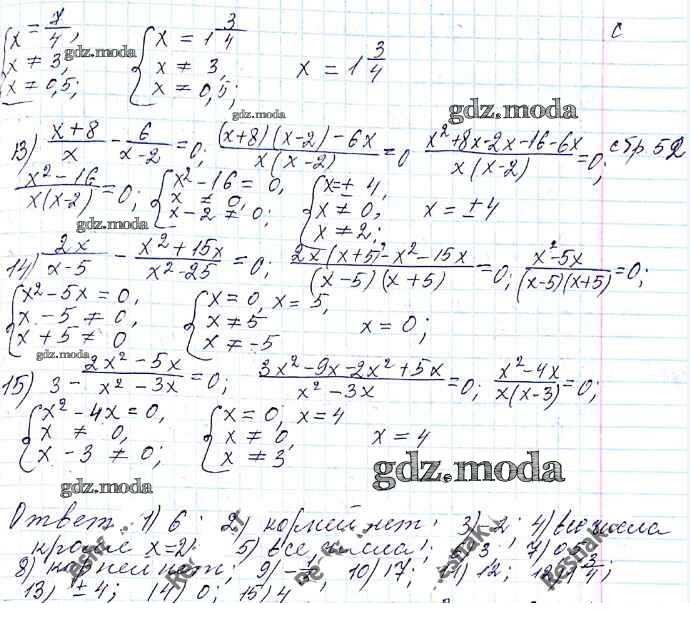 {x = 7/4, {x = 1 3/4
x ≠ 3, x ≠ 3, x = 1 3/4
x ≠ 0,5; x ≠ 0,5;
с
gdz.moda
gdz.moda
стр 52
13) (x+8)/x - 6/(x-2) = 0; ((x+8)(x-2)-6x)/(x(x-2)) = 0 (x²+8x-2x-16-6x)/(x(x-2)) = 0;
(x²-16)/(x(x-2)) = 0; {x²-16 = 0, {x = ± 4,
x ≠ 0, x ≠ 0, x = ±4
x-2 ≠ 0; x ≠ 2;
gdz.moda
14) 2x/(x-5) - (x²+15x)/(x²-25) = 0; (2x(x+5)-x²-15x)/((x-5)(x+5)) = 0; (x²-5x)/((x-5)(x+5)) = 0;
{x²-5x = 0, {x = 0, x = 5,
x-5 ≠ 0, x ≠ 5 x = 0;
x+5 ≠ 0 x ≠ -5
gdz.moda
15) 3 - (2x²-5x)/(x²-3x) = 0; (3x²-9x-2x²+5x)/(x²-3x) = 0; (x²-4x)/(x(x-3)) = 0;
{x²-4x = 0, {x = 0; x = 4
x ≠ 0, x ≠ 0, x = 4
x-3 ≠ 0; x ≠ 3
gdz.moda
gdz.moda
Ответ: 1) 6; 2) корней нет; 3) -2; 4) все числа
кроме x = 2; 5) все числа; 6) 3 7) 0;
8) корней нет; 9) 10) 17; 11) 12; 12) 1 3/4;
13) ±4; 14) 0; 15) 4
Reshak